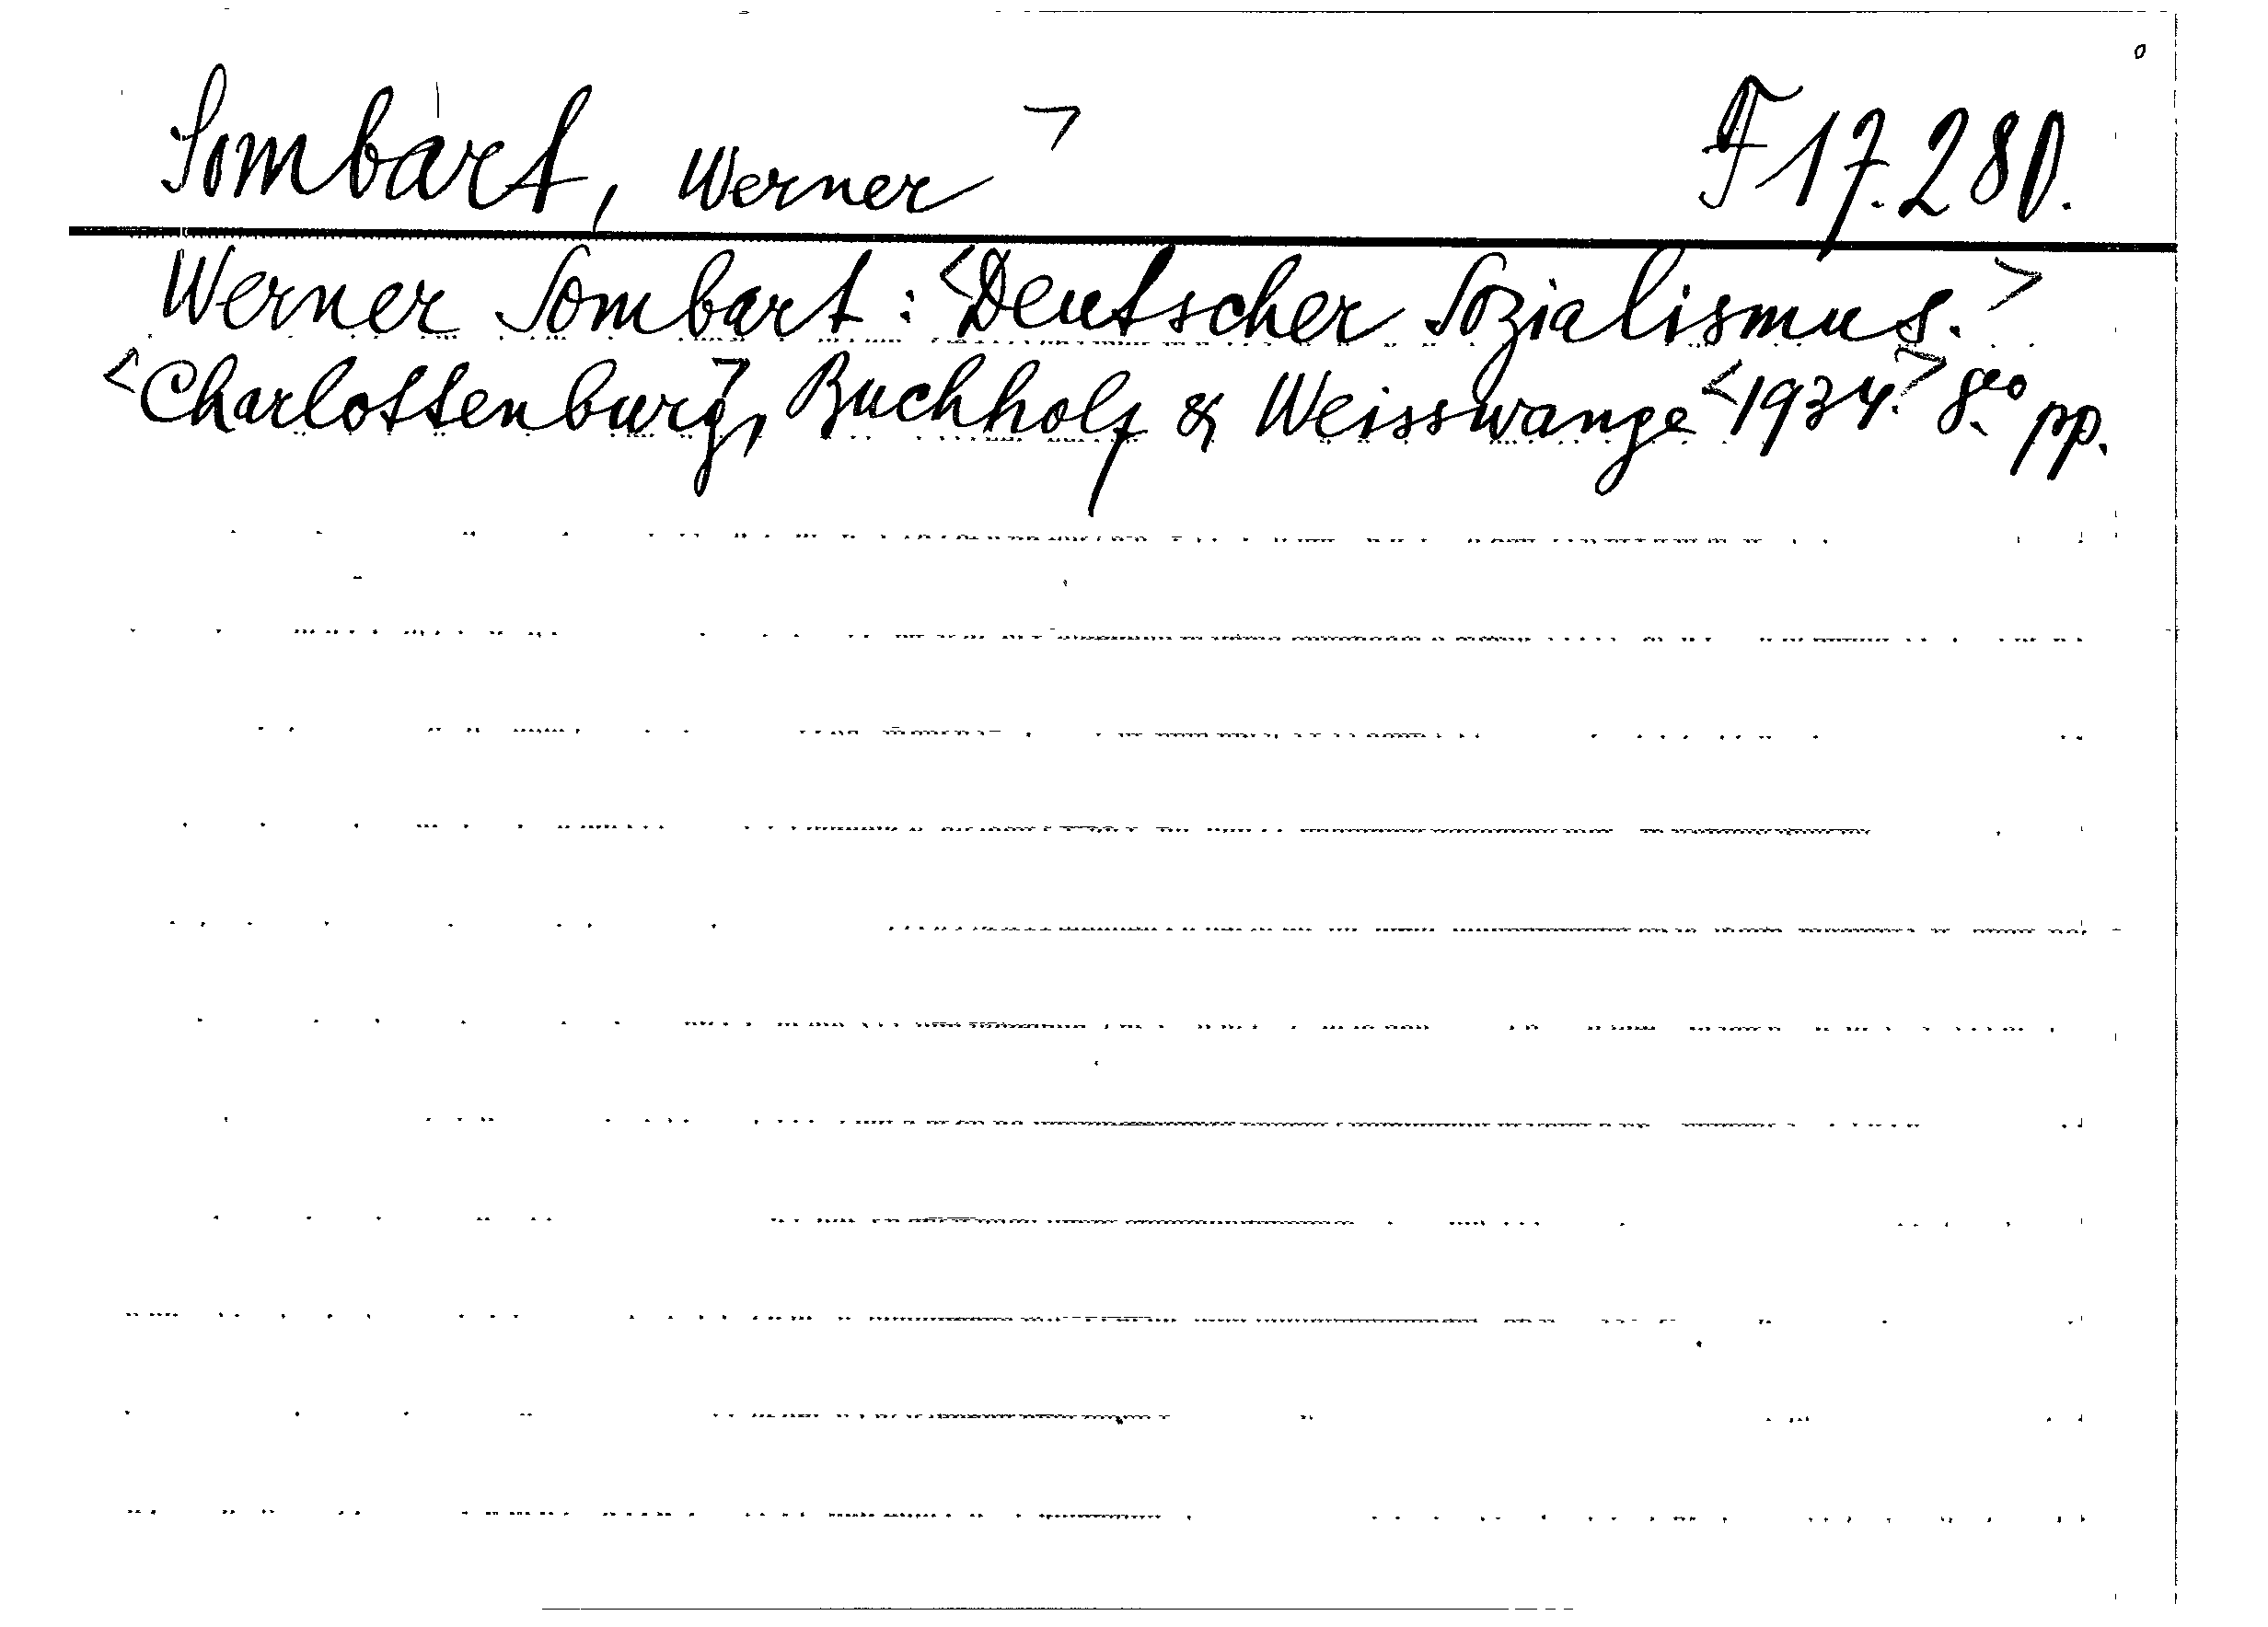 Sombart, Werner> F 17.280.
Werner Sombart: <Deutscher Sozialismus.>
<Charlottenburg>, Buchholz & Weisswange <1934.> 8.º pp.